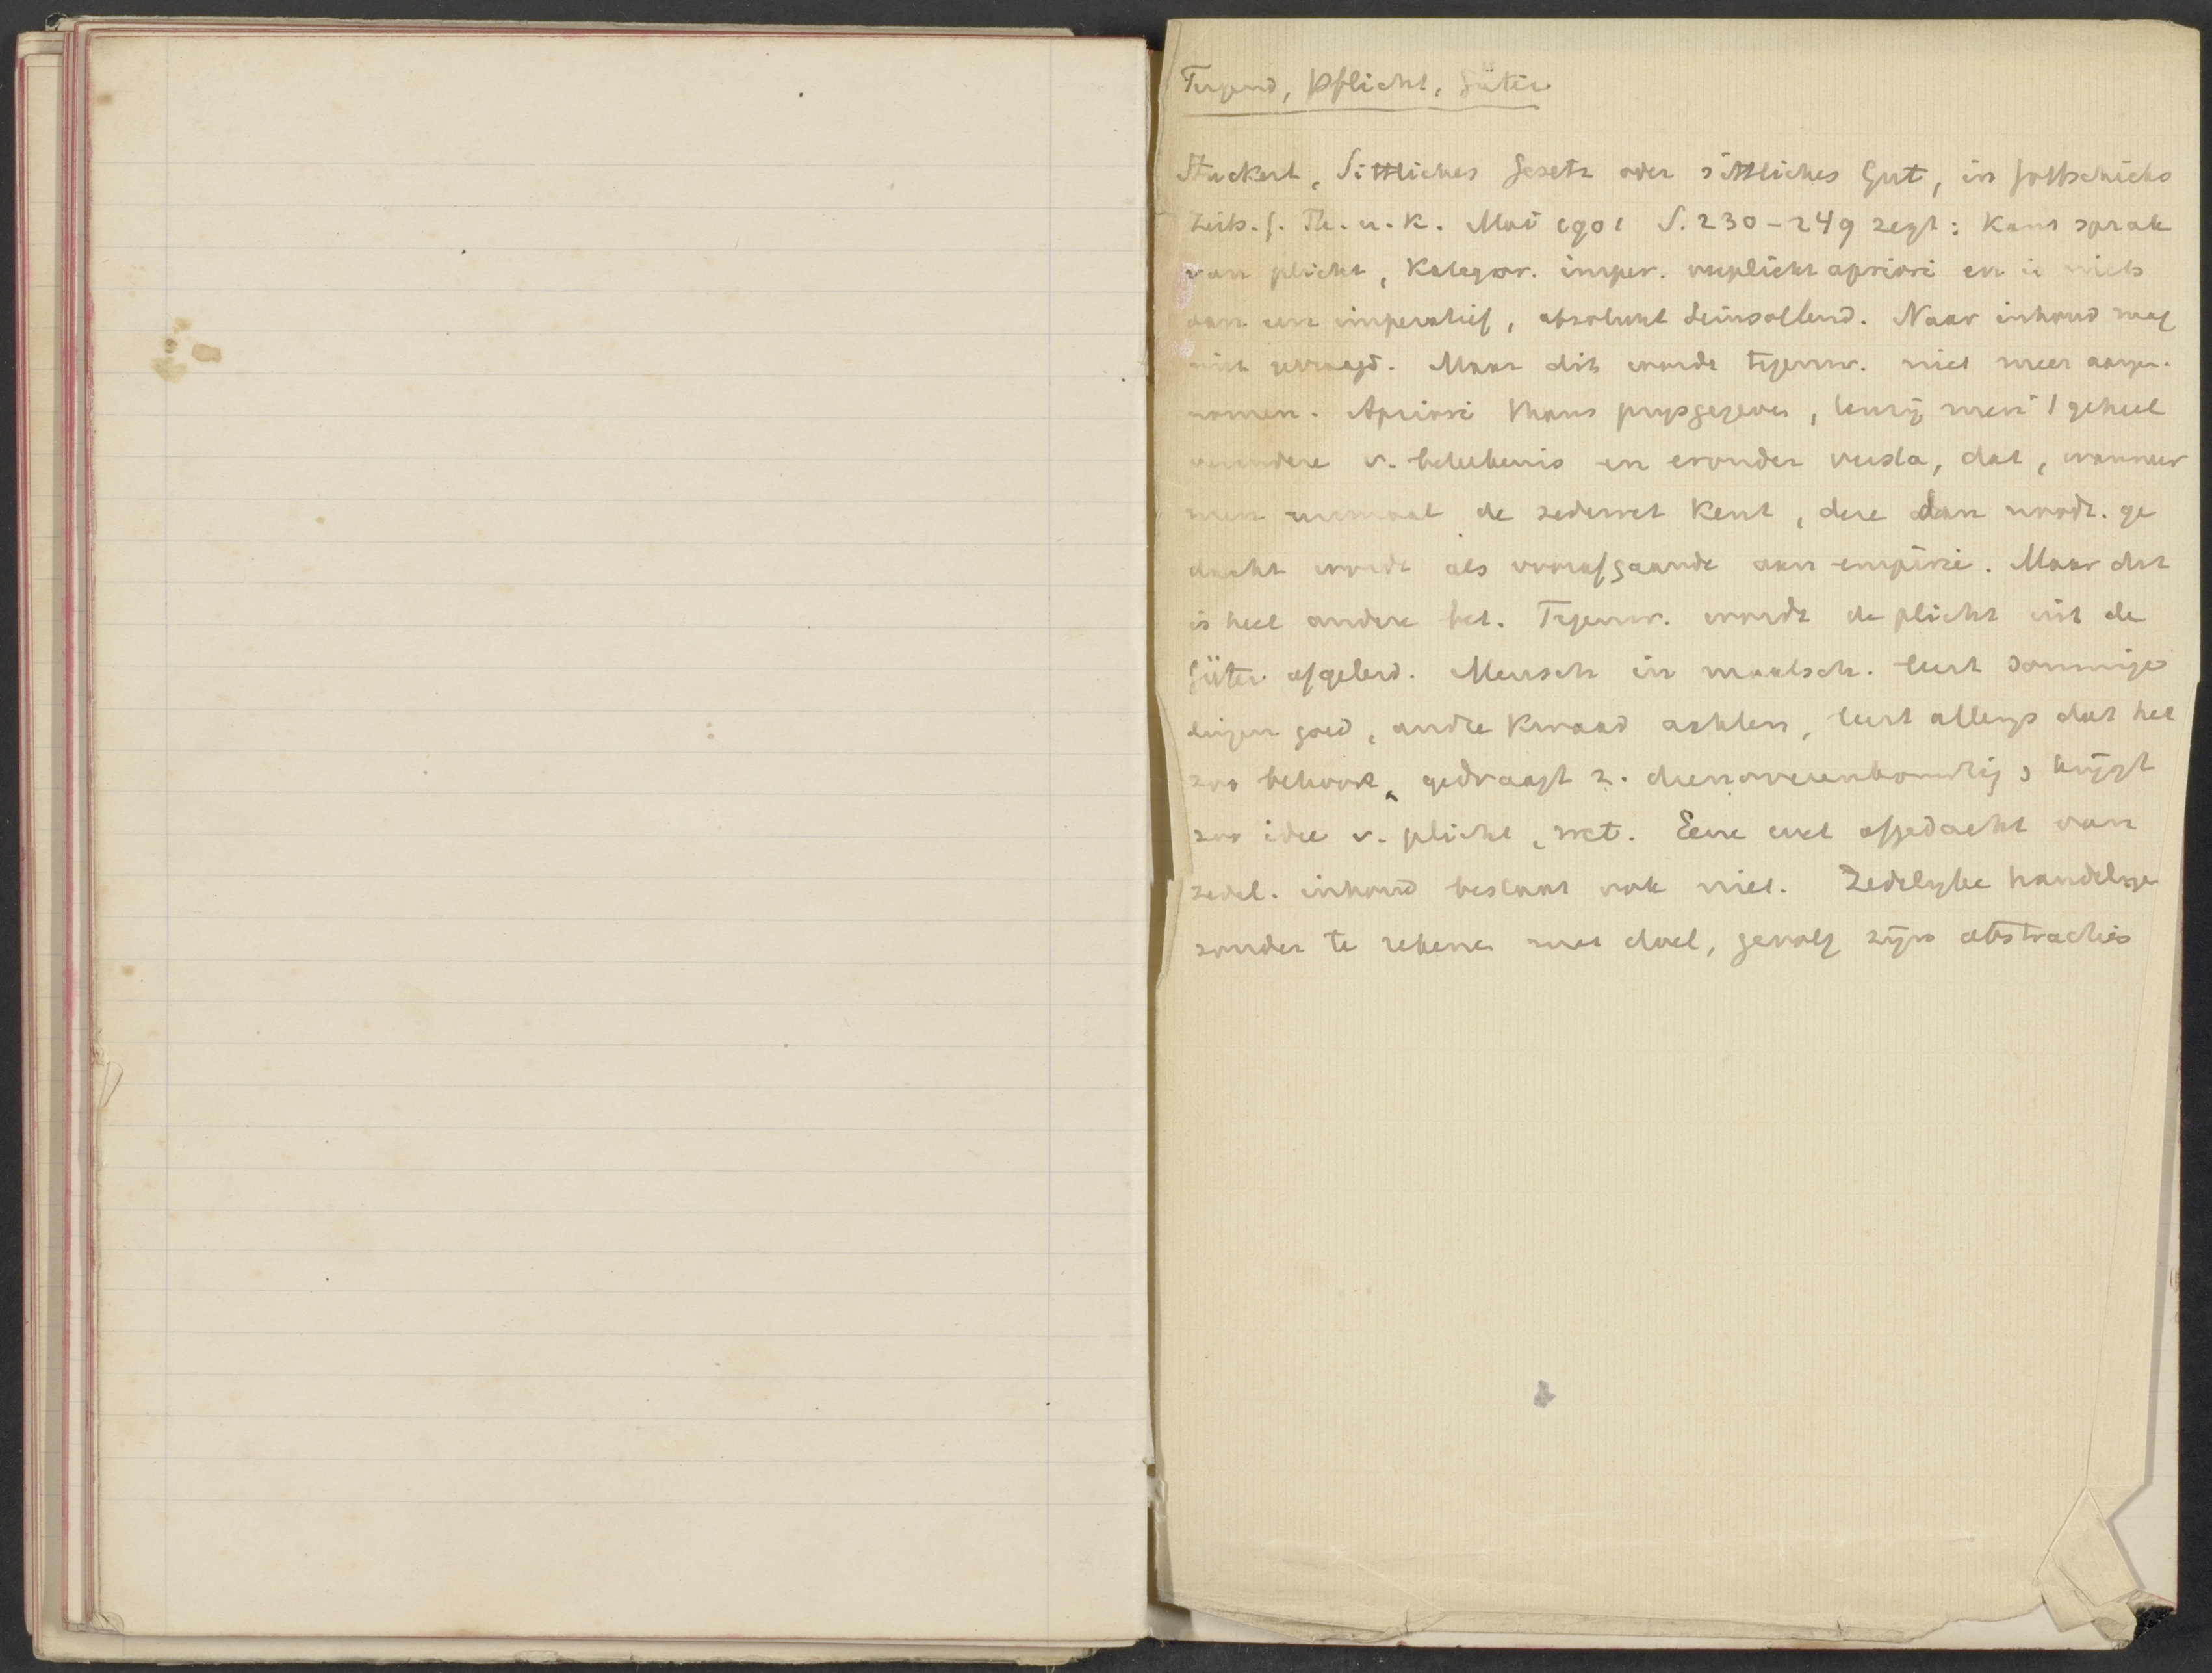 Tugend, Pflicht, Güter
Stuckert, Sittliches Gesetz oder sittliches Gut, in Gottschicks
Zeits. f. Th. u. K. Mai 1901 S. 230-249 zegt: Kant sprak
van plicht, Kategor. imper. uuplicht apriori en is niets
dan een imperatief, absoluut Seinsollend. Naar inhoud mag
niet gevraagd. Maar dit wordt tegenw. niet meer aange-
nomen. Apriori thans prijsgegeven, tenzij men 't geheel
verandere v. beteekenis en eronder versta, dat, wanneer
men eenmaal de zedewet kent, deze dan noodz. ge
dacht wordt als voorafgaande aan empirie. Maar dit
is heel andere bet. Tegenw. wordt de plicht uit de
Güter afgeleid. Mensch in maatsch. leert sommige
dingen goed, andre kwaad achten, leert allengs dat het
zoo behoort, gedraagt z. dienovereenkomstig, krijgt
zoo idee v. plicht, wet. Eene wet afgedacht van
zedel. inhoud bestaat ook niet. Zedelijke handelingen
zonder te rekenen met doel, gevolg zijn abstracties